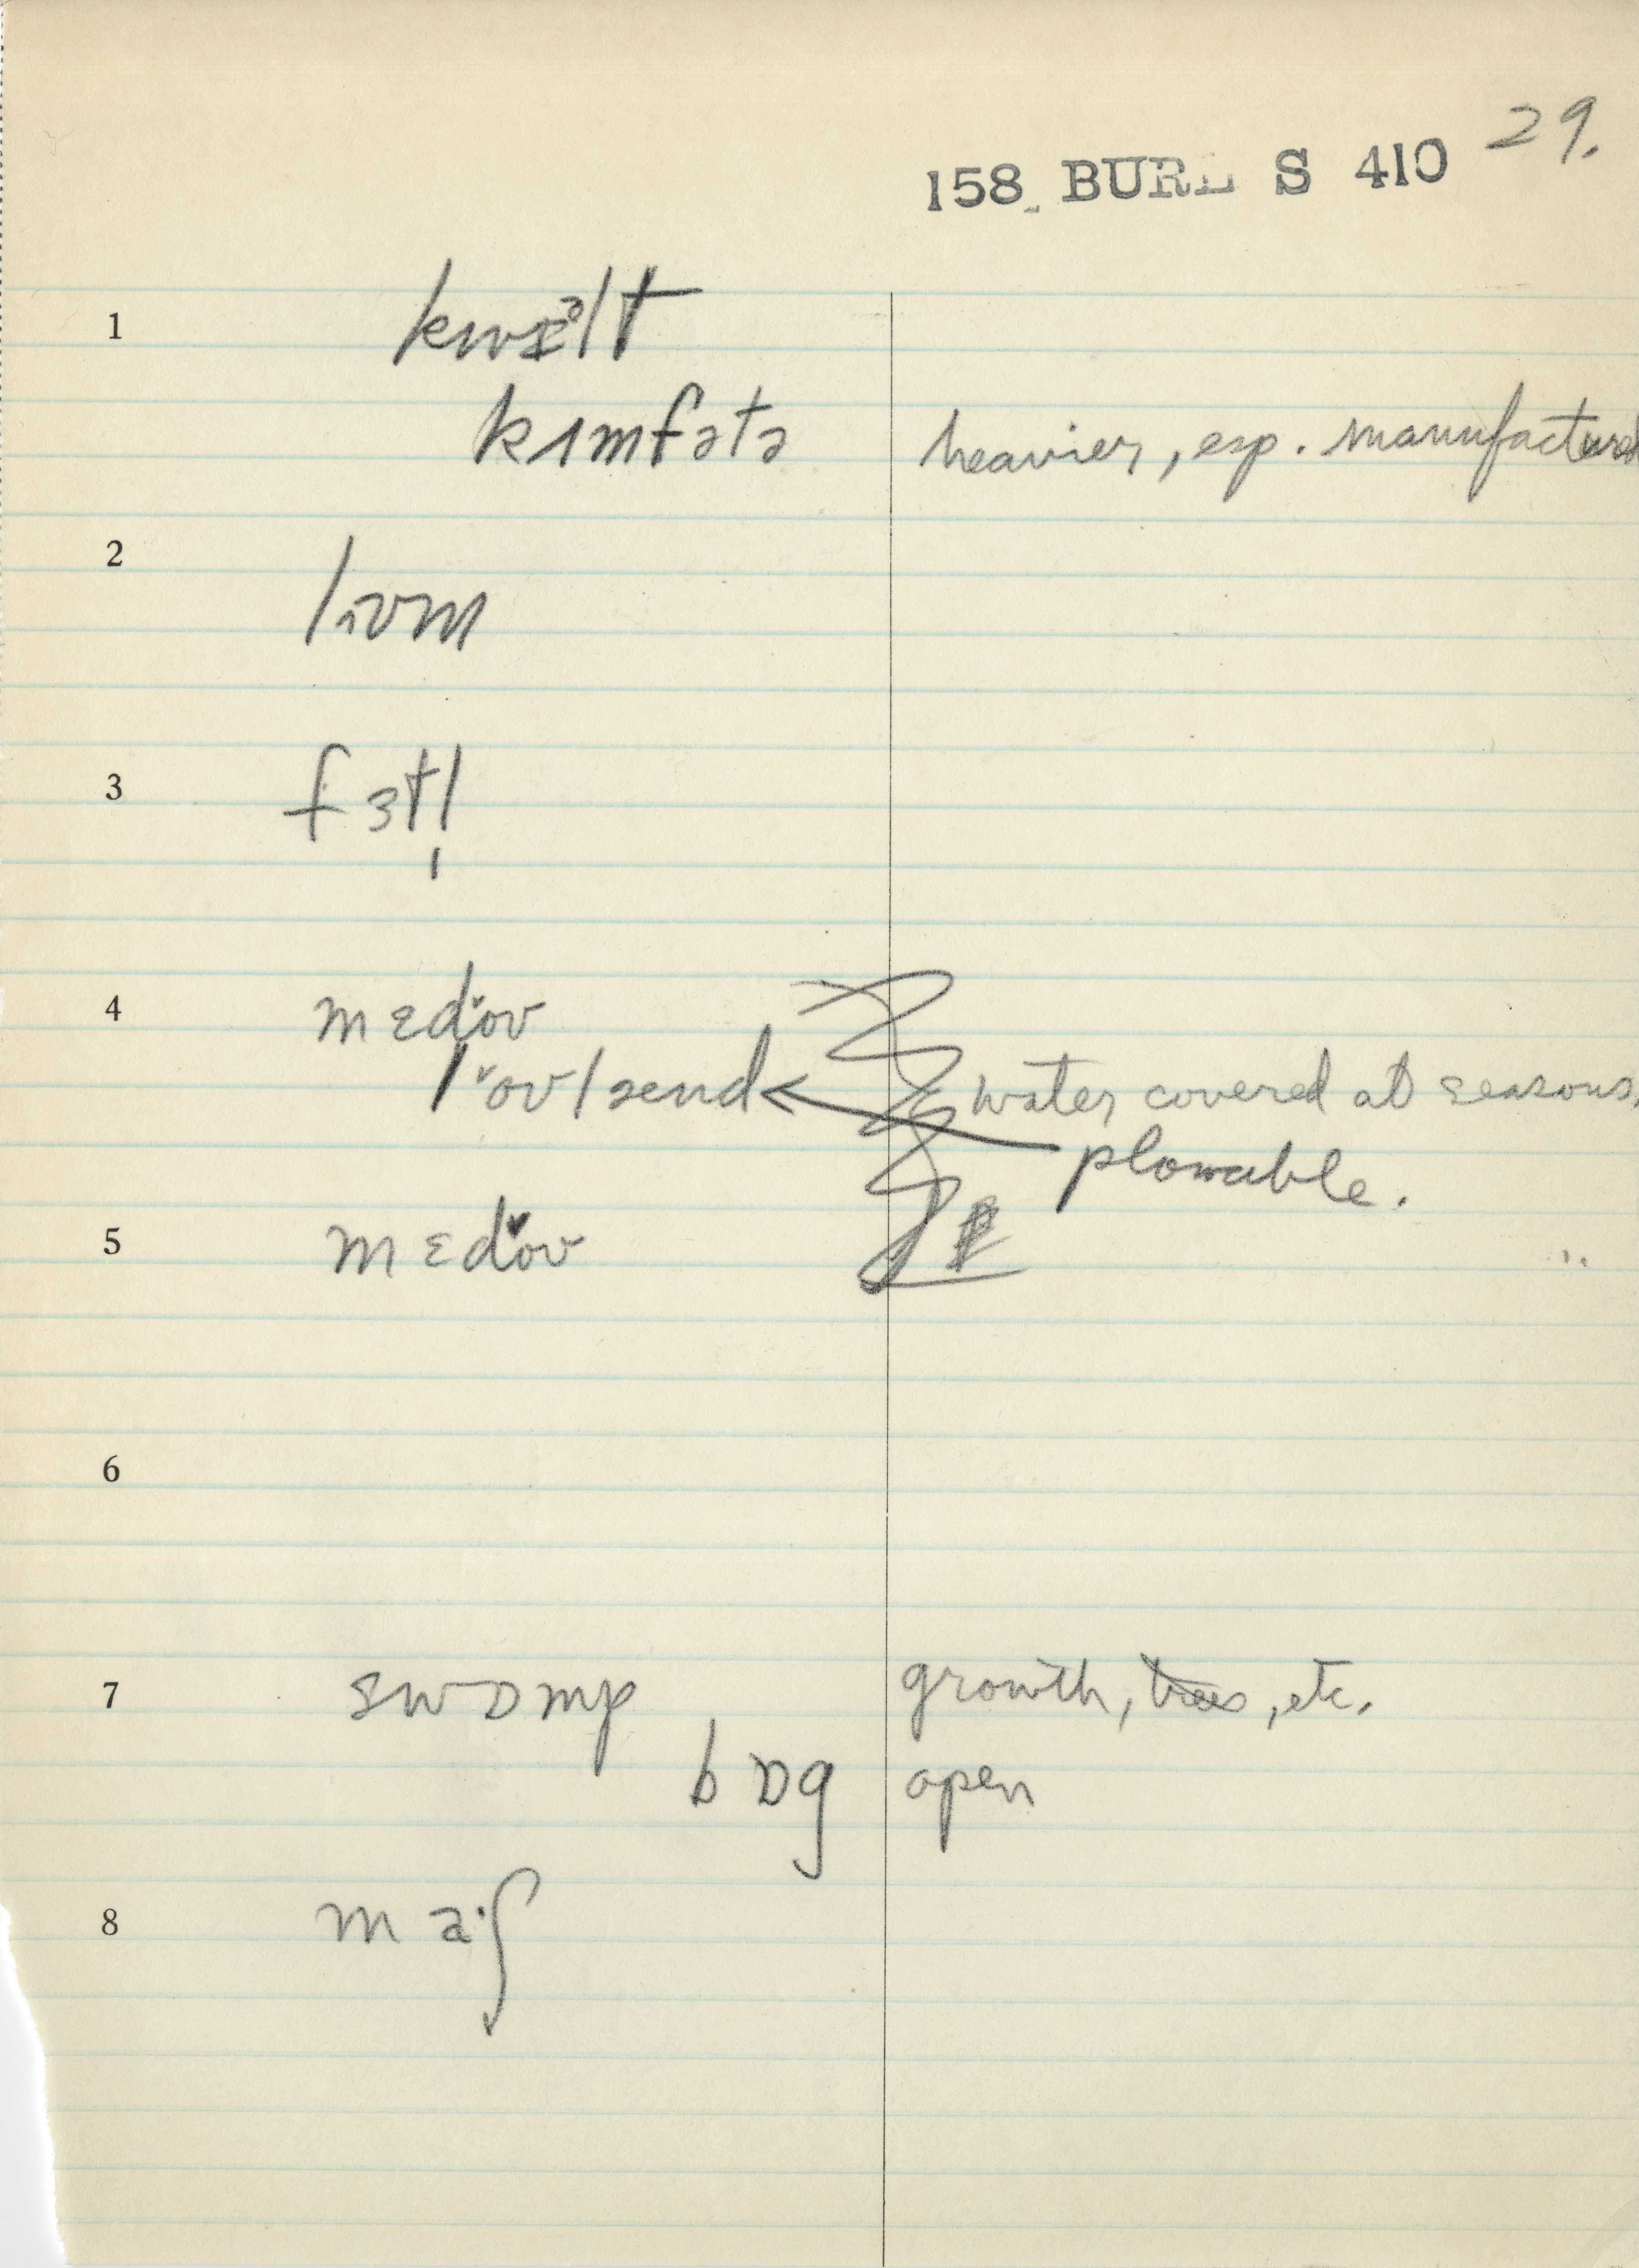 29.
158 BURL S 410
1 kwɪᵊlt
kɜmfətə heavier, esp. manufactured
2
lɒʊm
3 fɜtl̩
4 mɛdˇoʊ
lˇoʊlænd water covered at seasons,
plowable.
5 mɛdˇoʊ "
6
7 swɒmp growth, trees, etc.
bɒg open
8 maˑʃ